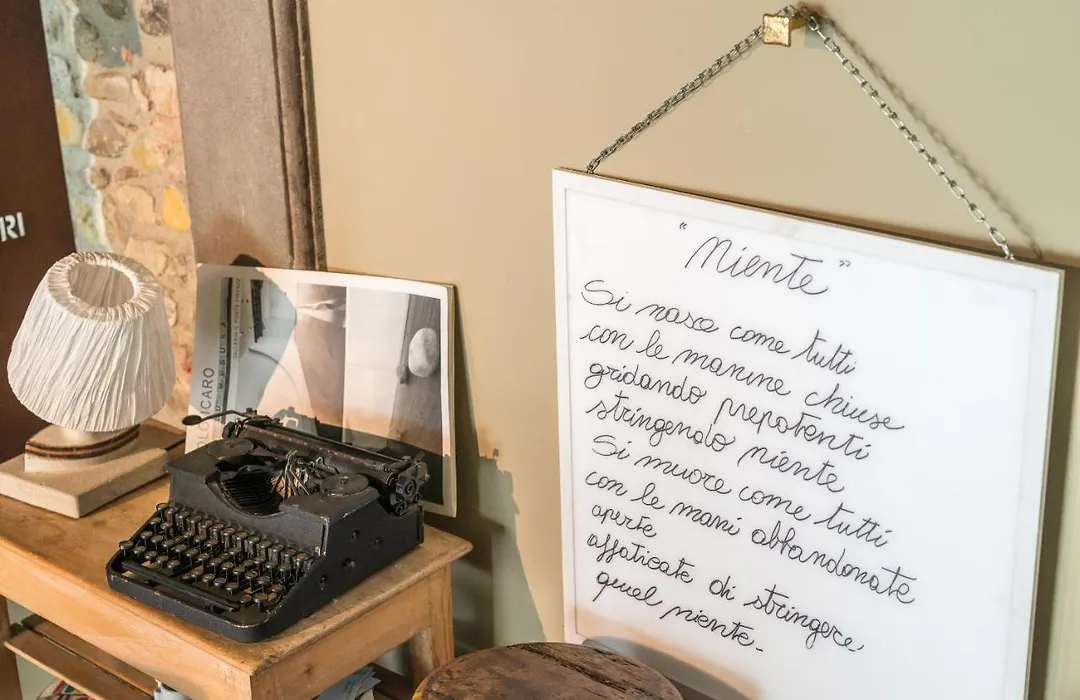 RI
OLOICARO
"Niente"
Si nasce come tutti
con le manine chiuse
gridando prepotenti
stringendo niente
Si muore come tutti
con le mani abbandonate
aperte
affaticate di stringere,
quel niente.